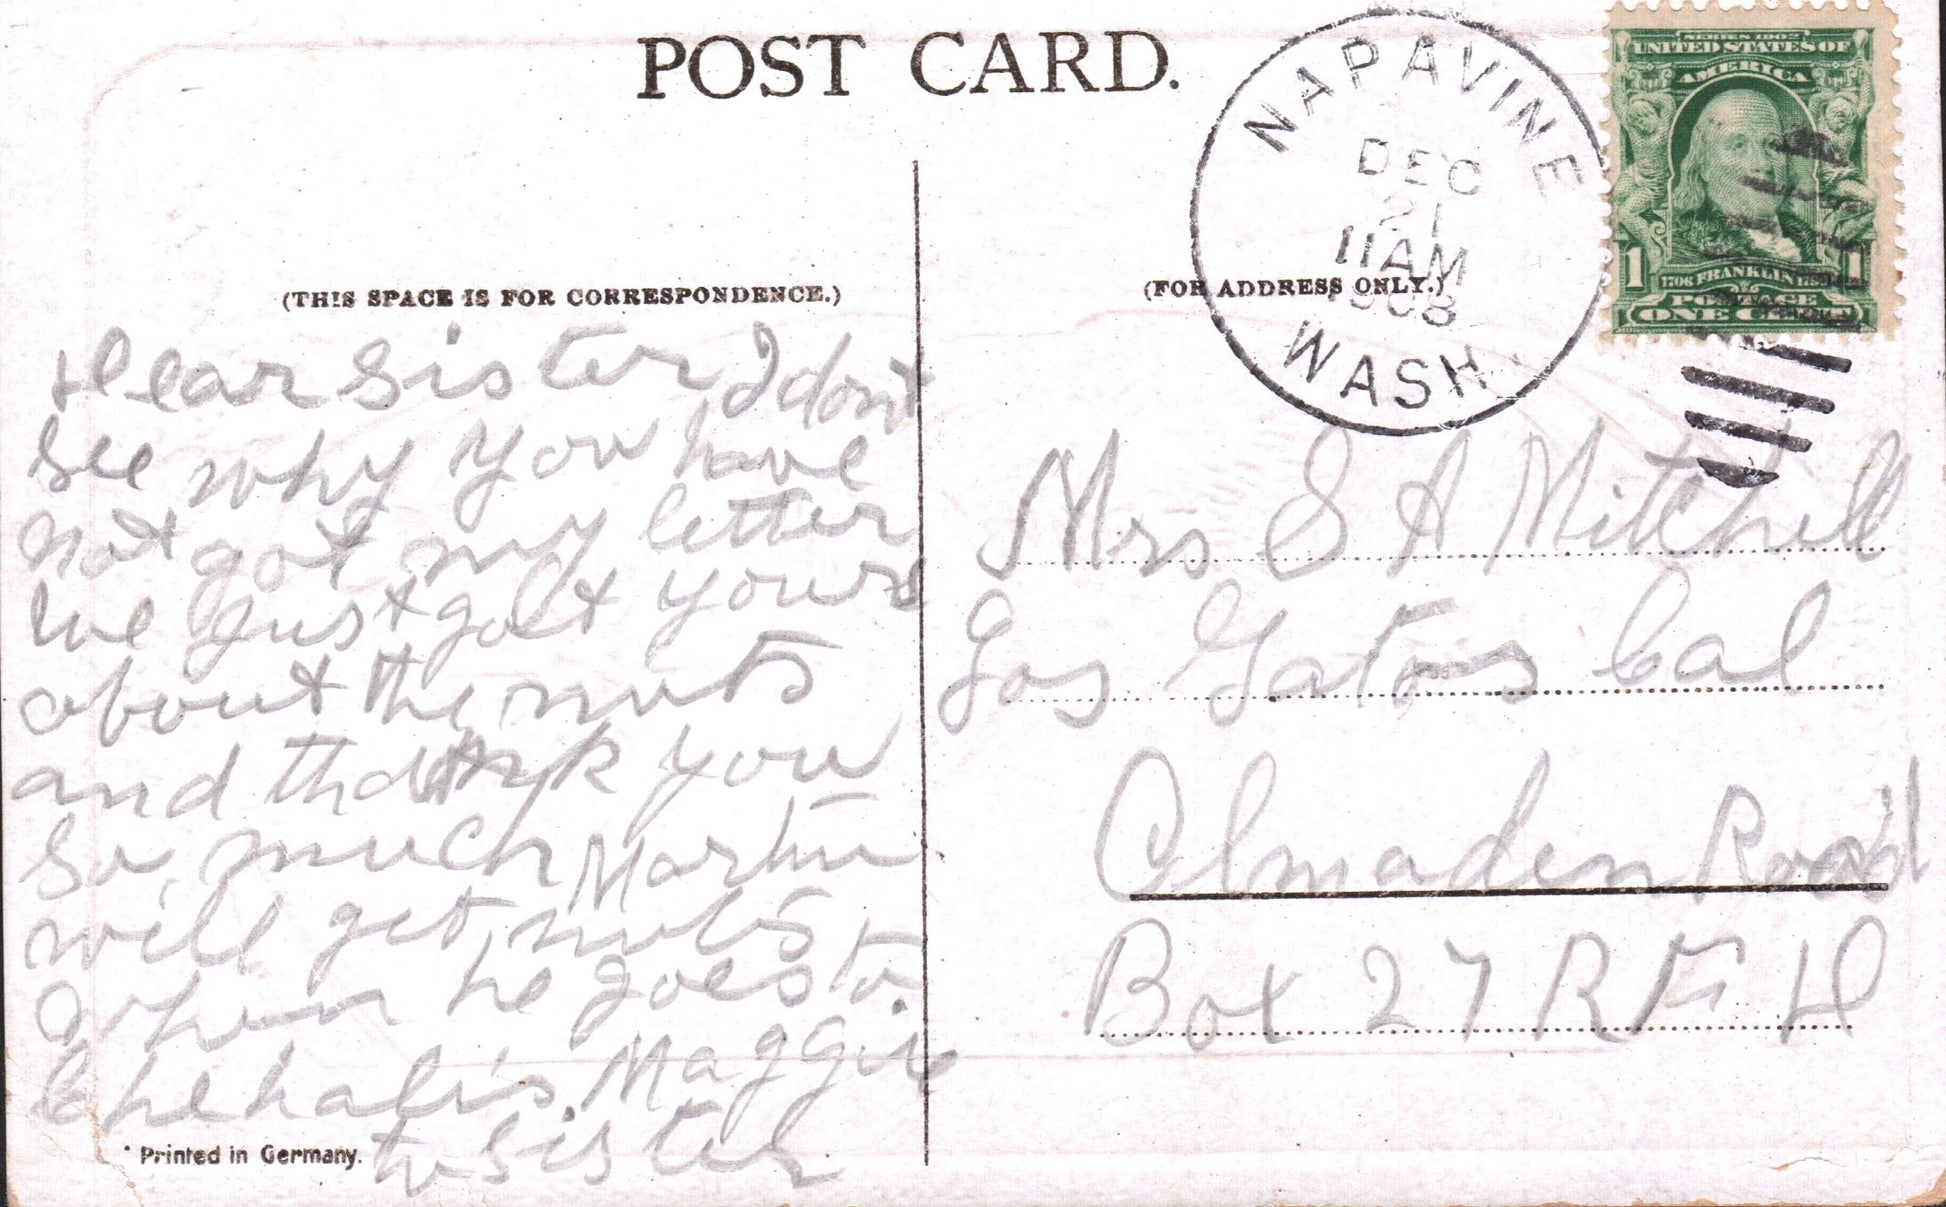 POST CARD.
NAPAVINE
DEC
21
11 AM
1908
WASH.
SERIES 1902
UNITED STATES OF
AMERICA
1 1
1706 FRANKLIN
POSTAGE
ONE
(THIS SPACE IS FOR CORRESPONDENCE.)
(FOR ADDRESS ONLY.)
Dear Sister I don't
see why you have
not got my letter
we just got yours
about the nuts
and thank you
so much Martin
will get nuts
when he goes to
Chehalis. Maggie
to Sister
Printed in Germany.
Mrs S A Mitchell
Los Gatos Cal
Almaden Road
Box 27 R F D